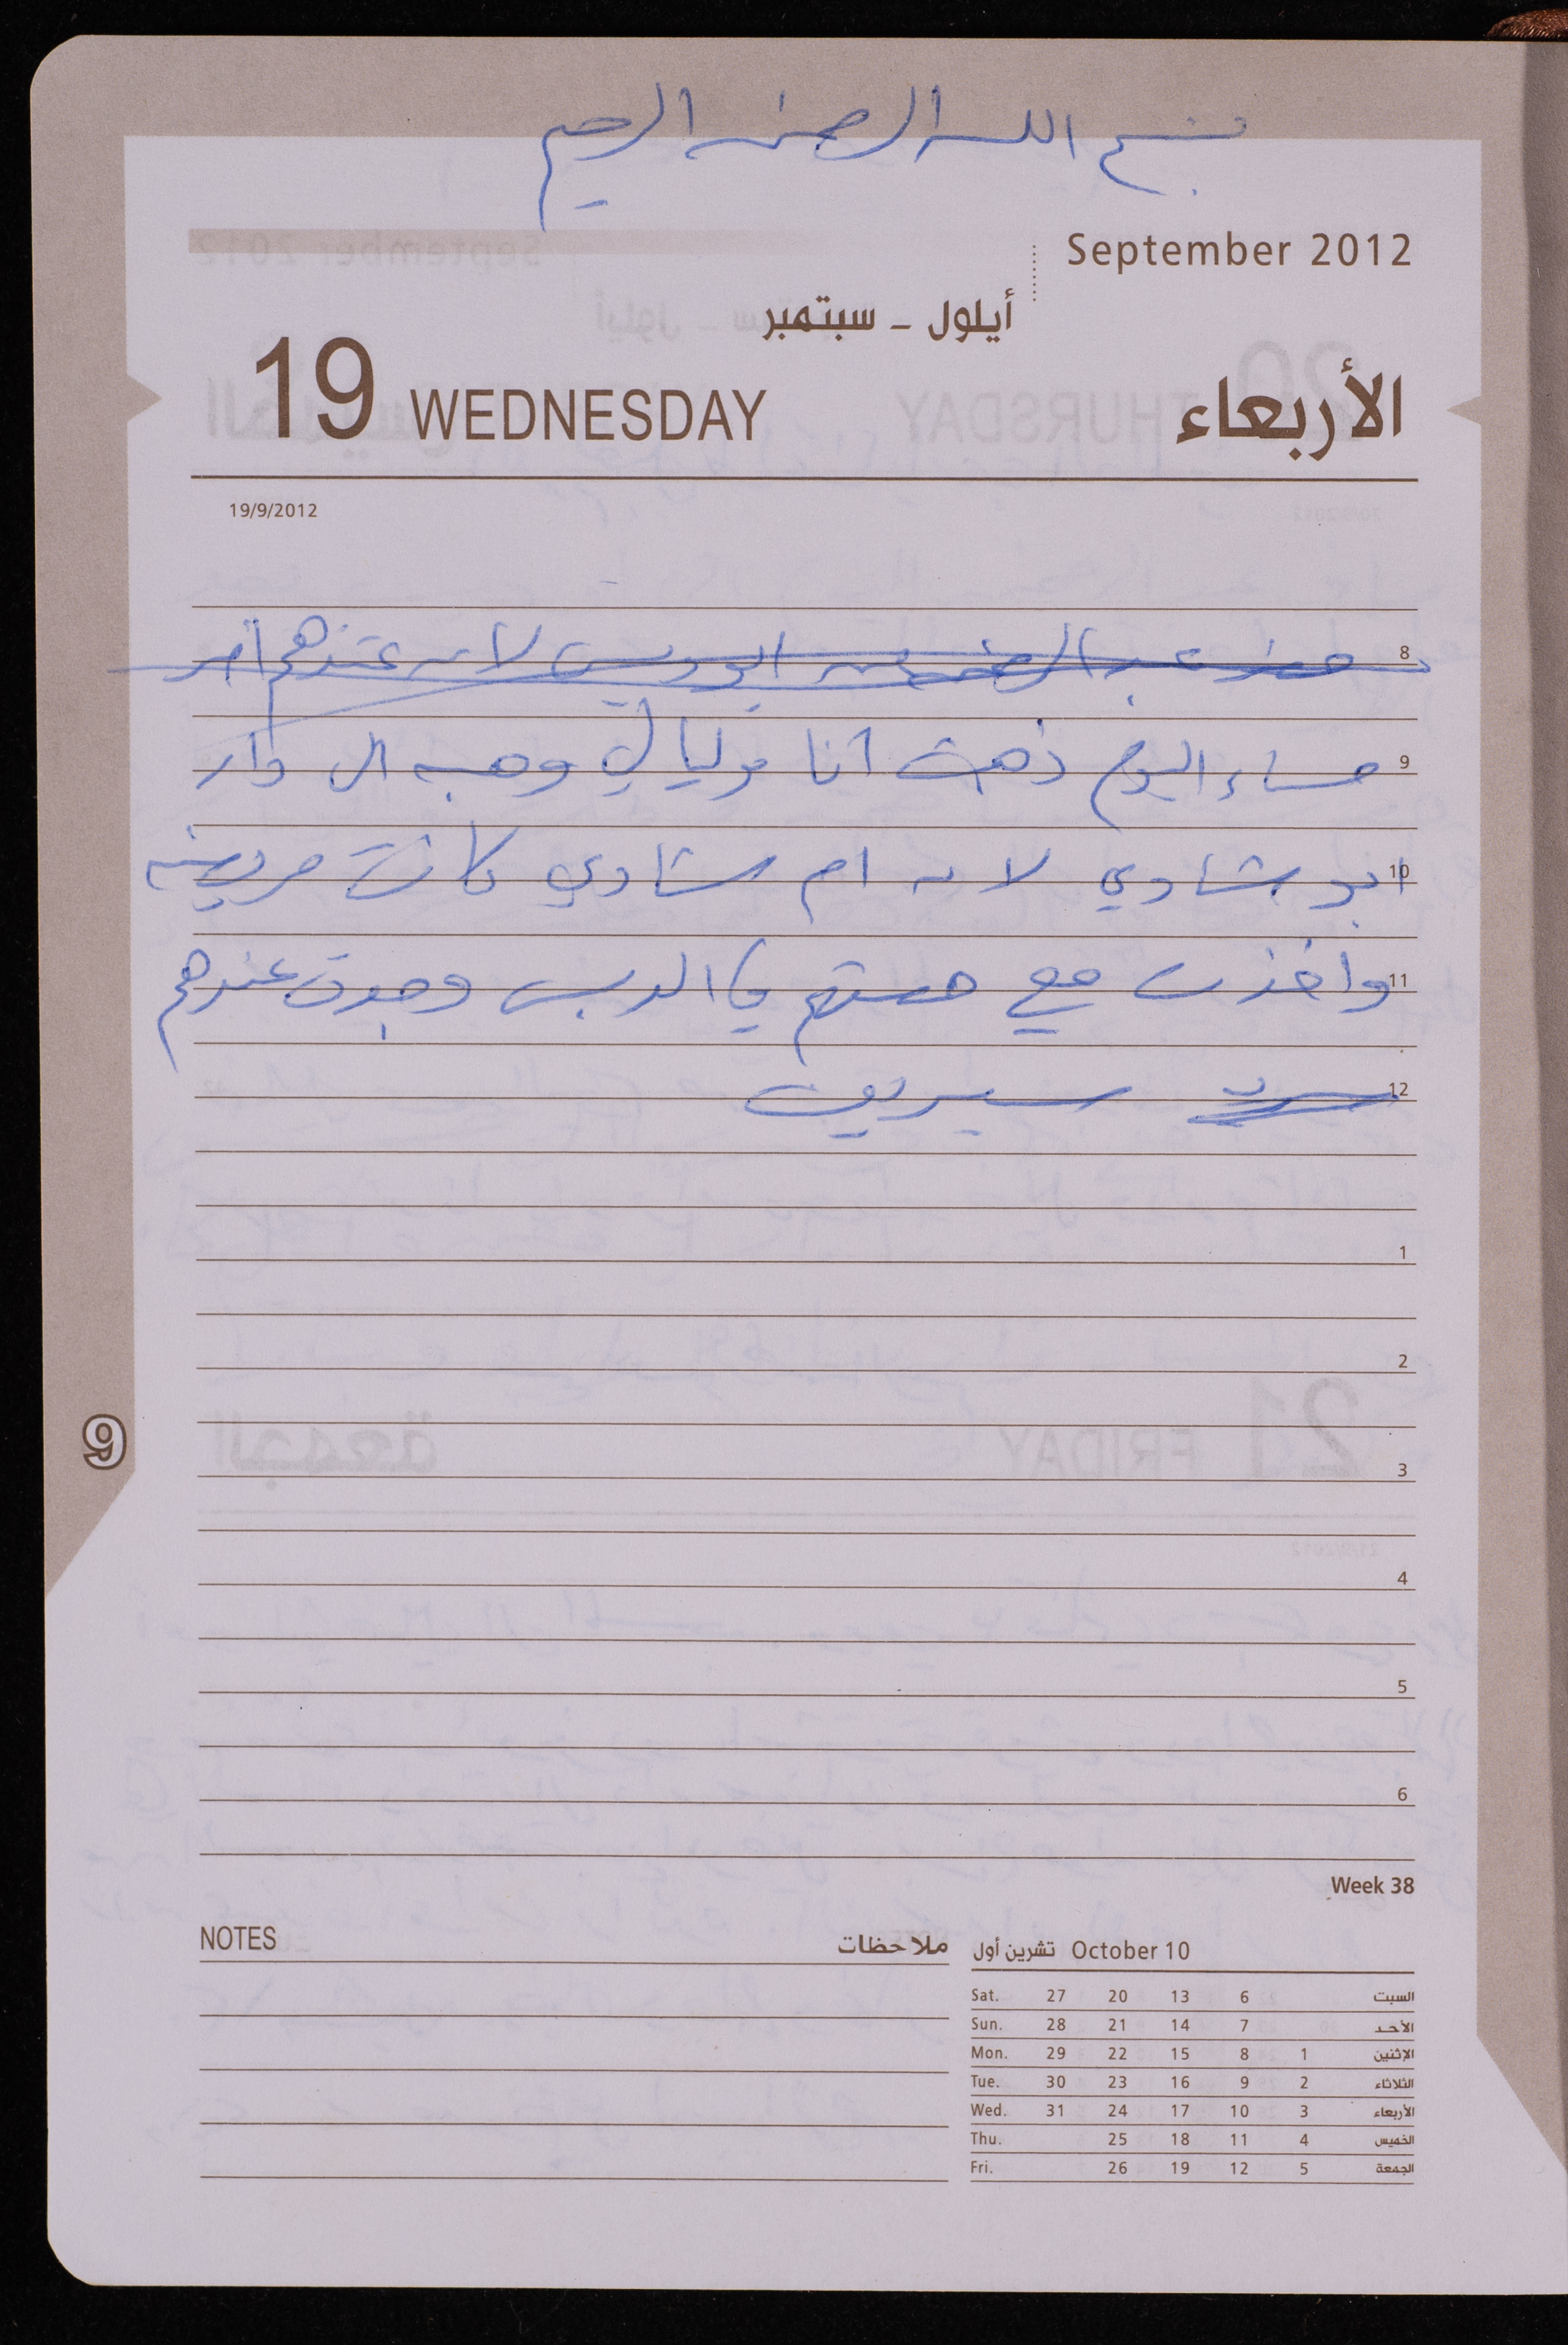 بسم الله الرحمن الرحيم
September 2012
أيلول ـ سبتمبر
19 WEDNESDAY الأربعاء
19/9/2012
8 حضر عبد الرحمن ابوديس لانه عندهم
9 مساء اليوم ذهبت انا وليالي وهبه الى دار
10 ابو شادي لانه ام شادي كانت مريضه
11 واخذت معي الدبس وجدت عندهم
12 سيرين
1
2
3
4
5
6
9
Week 38
NOTES ملاحظات
تشرين أول October 10
Sat. 27 20 13 6 السبت
Sun. 28 21 14 7 الأحد
Mon. 29 22 15 8 1 الإثنين
Tue. 30 23 16 9 2 الثلاثاء
Wed. 31 24 17 10 3 الأربعاء
Thu. 25 18 11 4 الخميس
Fri. 26 19 12 5 الجمعة